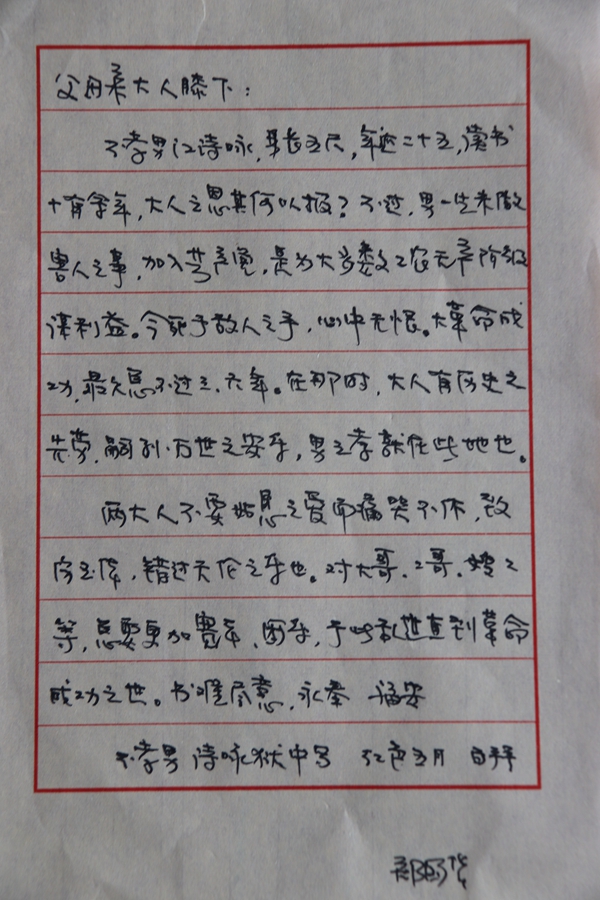 父母亲大人膝下：
不孝男江诗咏，身长五尺，年近二十五，读书
十有余年，大人之恩其何以报？不过，男一生未做
害人之事，加入共产党，是为大多数工农无产阶级
谋利益。今死于敌人之手，心中无恨。大革命成
功，最久总不过三、六年。在那时，大人有历史之
光荣，嗣孙万世之安乐，男之孝就在些地也。
两大人不要姑息之爱而痛哭不休，致
伤玉体，错过天伦之乐也。对大哥、二哥、嫂之
等，总要更加宽年，团乐，于此乱世直到革命
成功之世。书难尽意，永奉 福安
不孝男 诗咏狱中书 红色五月 自拜